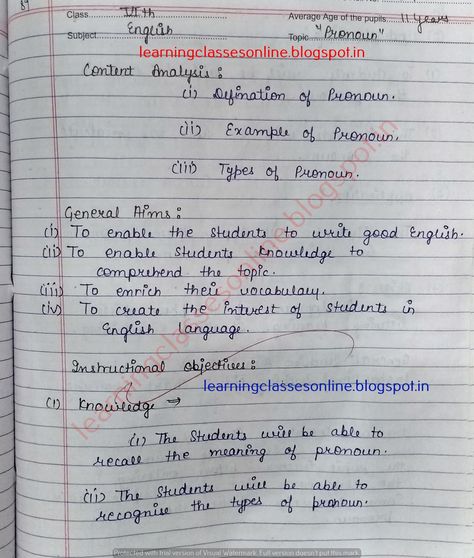 Class VIth Average Age of the pupils 11 years
Subject English Topic "Pronoun"
learningclassesonline.blogspot.in
Content Analysis :
(i) Defination of Pronoun.
(ii) Example of Pronoun.
(iii) Types of Pronoun.
General Aims :
(i) To enable the students to write good English.
(ii) To enable students knowledge to
comprehend the topic.
(iii) To enrich their vocabulary.
(iv) To create the interest of students in
English language.
learningclassesonline.blogspot.in
Instructional objectives :
learningclassesonline.blogspot.in
(1) Knowledge →
(i) The Students will be able to
recall the meaning of pronoun.
(ii) The Students will be able to
recognise the types of pronoun.
Protected with trial version of Visual Watermark. Full version doesn't put this mark.